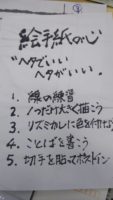 絵手紙の心
"ヘタでいい
ヘタがいい。"
1. 線の練習
2. 1つだけ大きく描こう
3. リズミカルに色を付けな
4. ことばを書う
5. 切手を貼ってポストイン